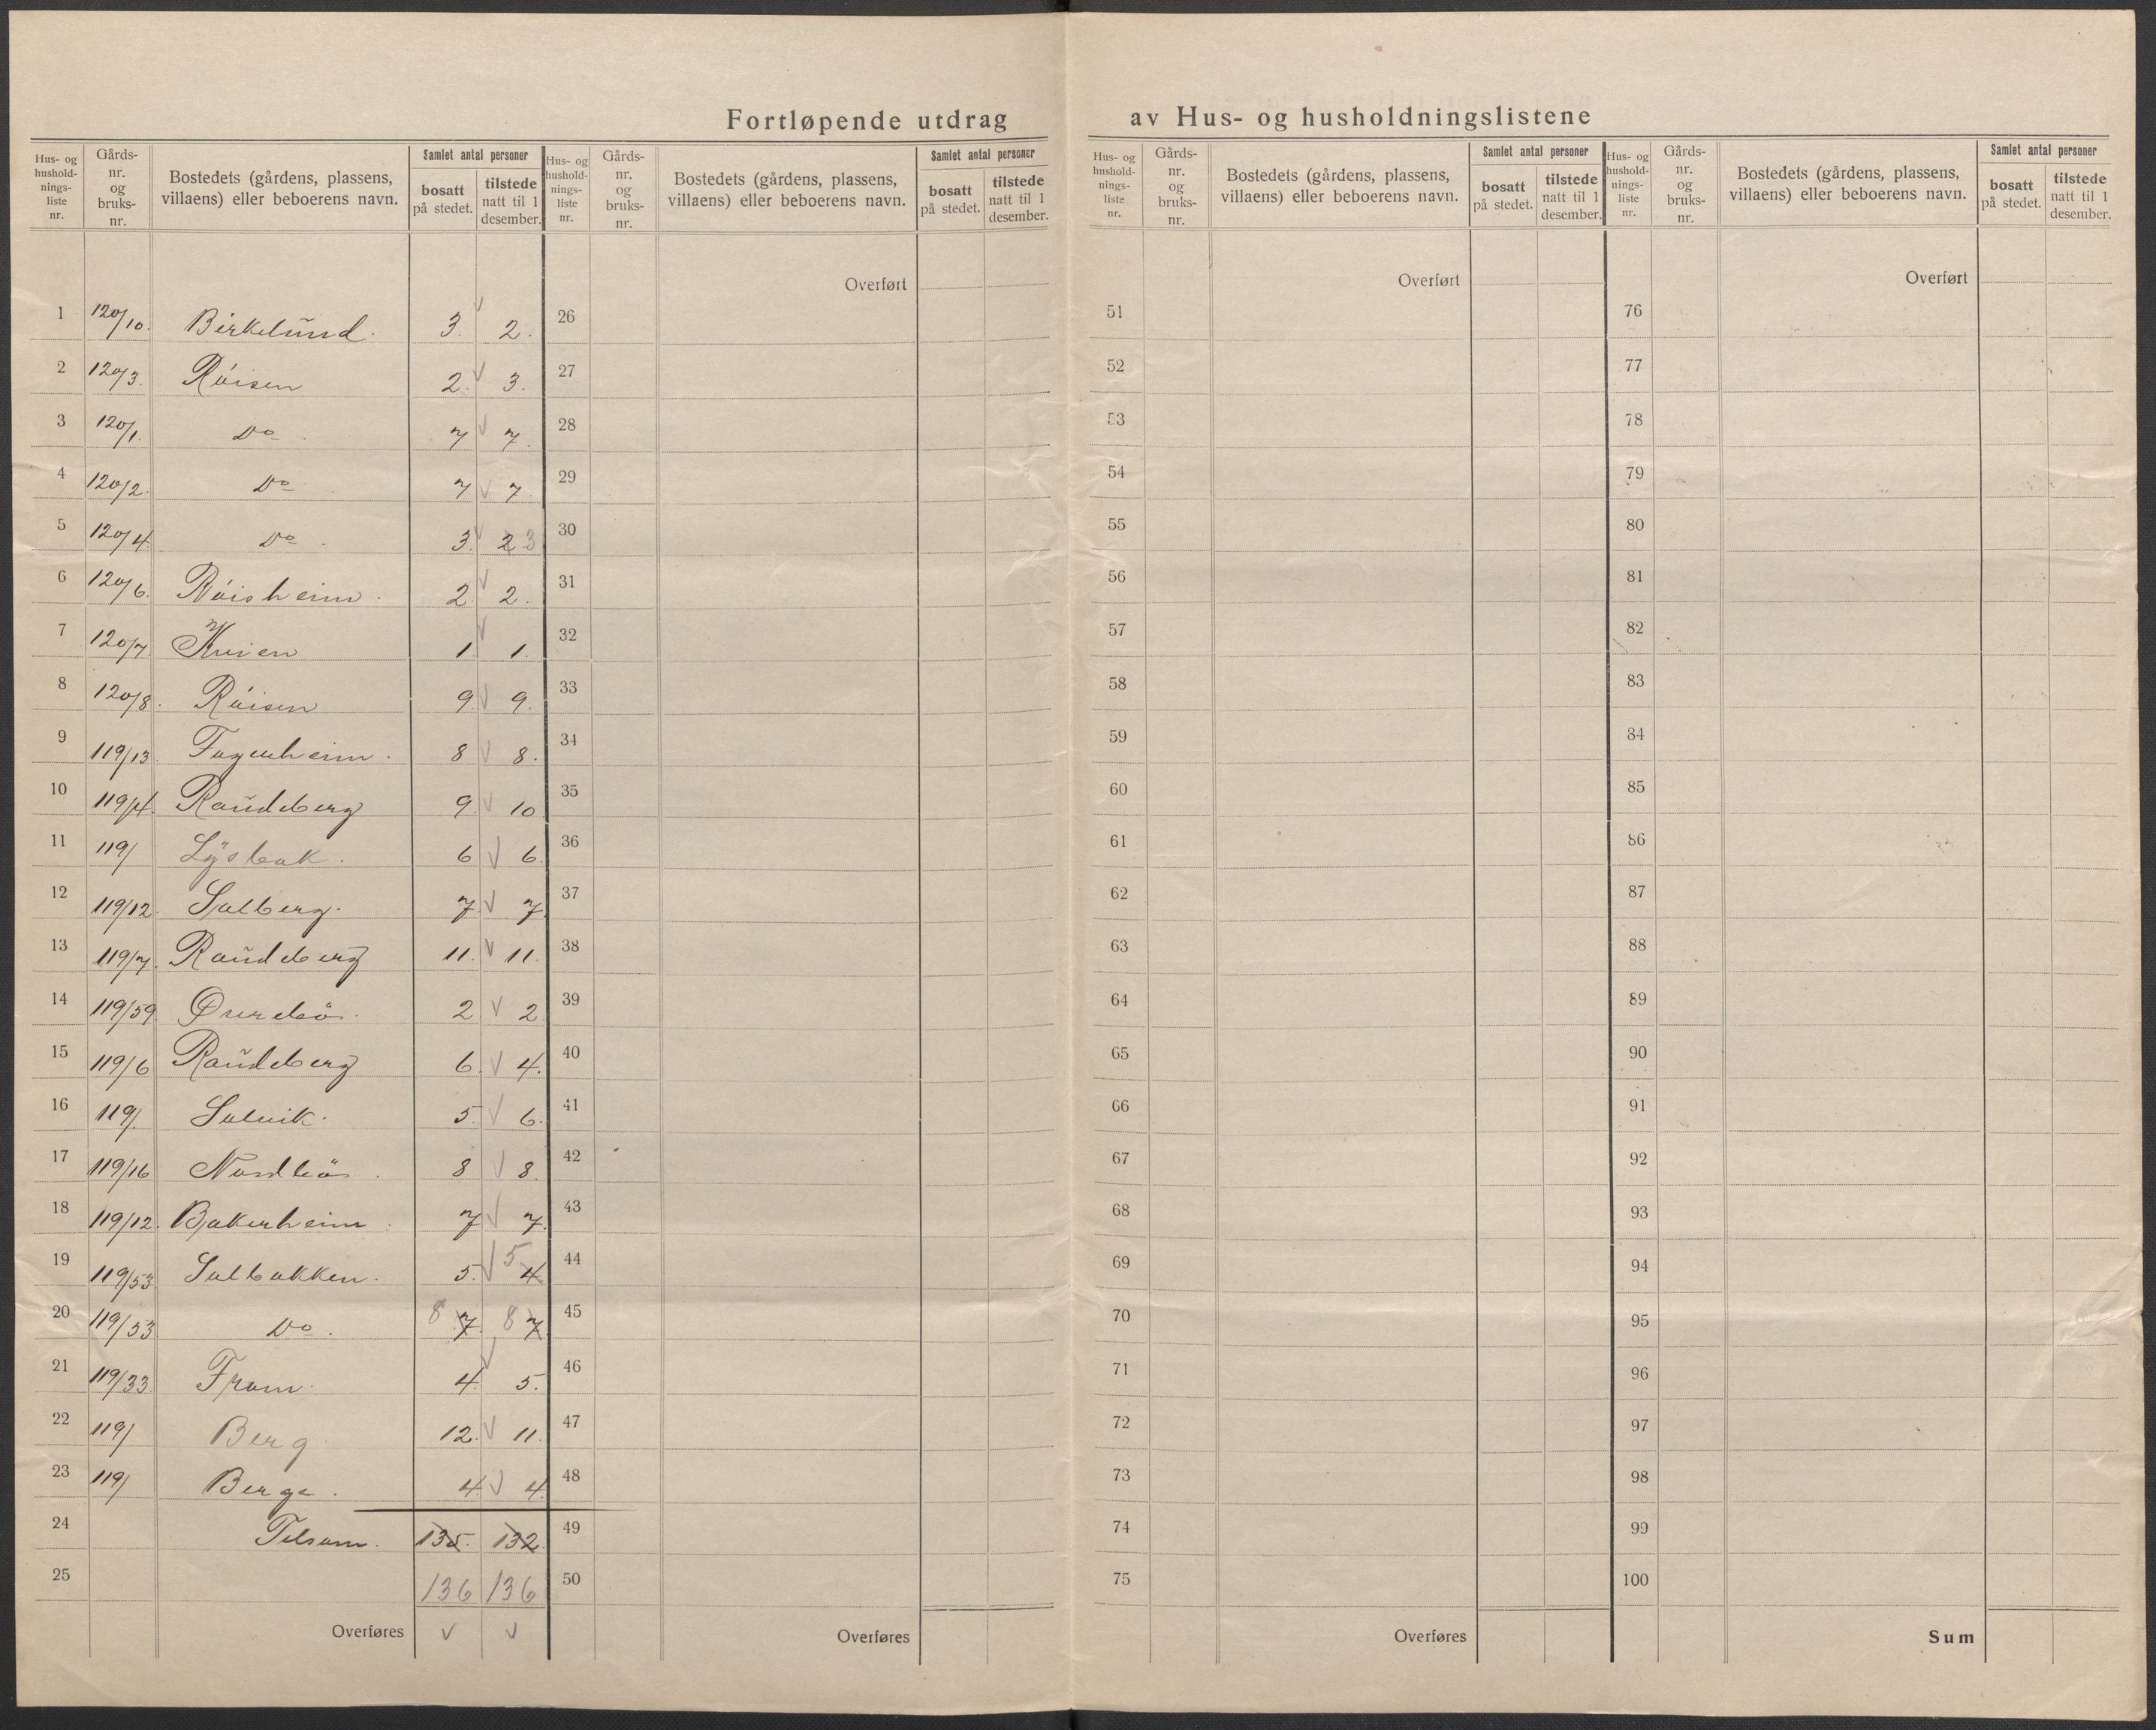 Fortløpende utdrag av Hus- og husholdningslistene
Hus- og hushold-nings-liste nr. Gårds-nr. og bruks-nr. Bostedets (gårdens, plassens, villaens) eller beboerens navn. Samlet antal personer bosatt på stedet. tilstede natt til 1 desember.
Hus- og hushold-nings-liste nr. Gårds-nr. og bruks-nr. Bostedets (gårdens, plassens, villaens) eller beboerens navn. Samlet antal personer bosatt på stedet. tilstede natt til 1 desember.
Hus- og hushold-nings-liste nr. Gårds-nr. og bruks-nr. Bostedets (gårdens, plassens, villaens) eller beboerens navn. Samlet antal personer bosatt på stedet. tilstede natt til 1 desember.
Hus- og hushold-nings-liste nr. Gårds-nr. og bruks-nr. Bostedets (gårdens, plassens, villaens) eller beboerens navn. Samlet antal personer bosatt på stedet. tilstede natt til 1 desember.
Overført Overført Overført
1 120/10. Birkelund. 3. 2. 26 51 76
2 120/3. Röisen 2. 3. 27 52 77
3 120/1. Do 7 7. 28 53 78
4 120/2. Do 7 7 29 54 79
5 120/4. Do. 3. 2 3 30 55 80
6 120/6. Röisheim. 2. 2. 31 56 81
7 120/7. Kvien 1. 1. 32 57 82
8 120/8. Röisen 9. 9. 33 58 83
9 119/13. Fagerheim. 8 8. 34 59 84
10 119/4. Randeberg 9. 10 35 60 85
11 119/ Lysbak. 6 6. 36 61 86
12 119/12. Solberg. 7. 7. 37 62 87
13 119/7. Randeberg 11. 11. 38 63 88
14 119/59. Øverbö. 2 2. 39 64 89
15 119/6 Randeberg 6. 4. 40 65 90
16 119/. Solvik. 5 6. 41 66 91
17 119/16 Nordbö. 8 8. 42 67 92
18 119/12. Bakerheim. 7 7. 43 68 93
19 119/53. Solbakken. 5. 5 4 44 69 94
20 119/53 Do. 8 7. 8 7 45 70 95
21 119/33. Fram. 4. 5. 46 71 96
22 119/ Berg 12. 11. 47 72 97
23 119/ Berge. 4. 4. 48 73 98
24 Tilsam. 135. 132. 49 74 99
25 136 136 50 75 100
Overføres Overføres Overføres Sum